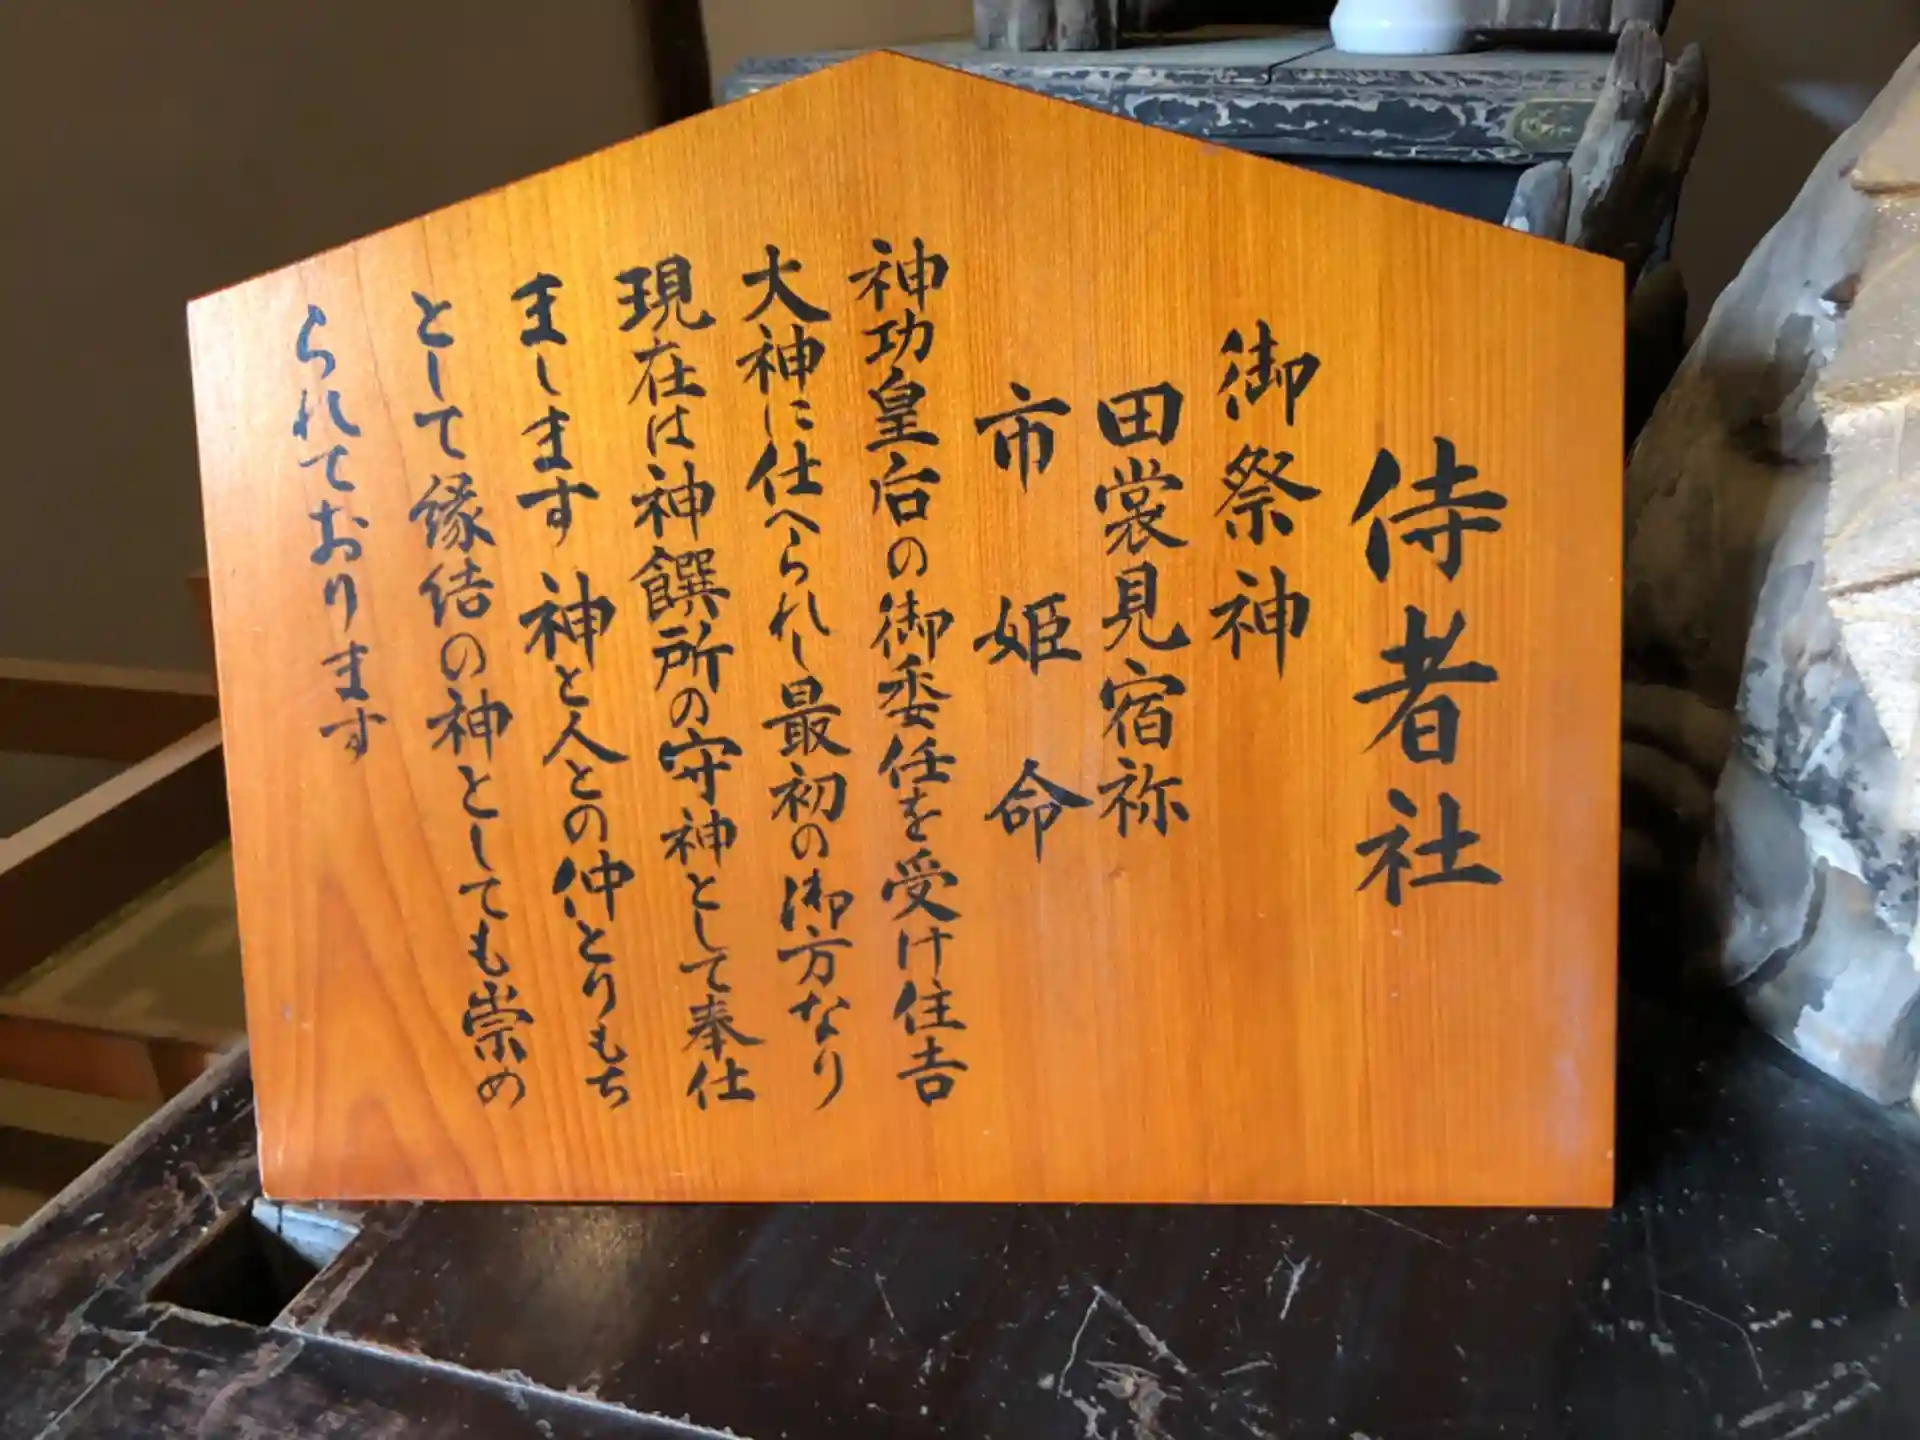 侍者社
御祭神
田裳見宿祢
市姫命
神功皇后の御委任を受け住吉
大神に仕へられし最初の御方なり
現在は神饌所の守神として奉仕
まします神と人との仲とりもち
として縁結の神としても崇め
られております